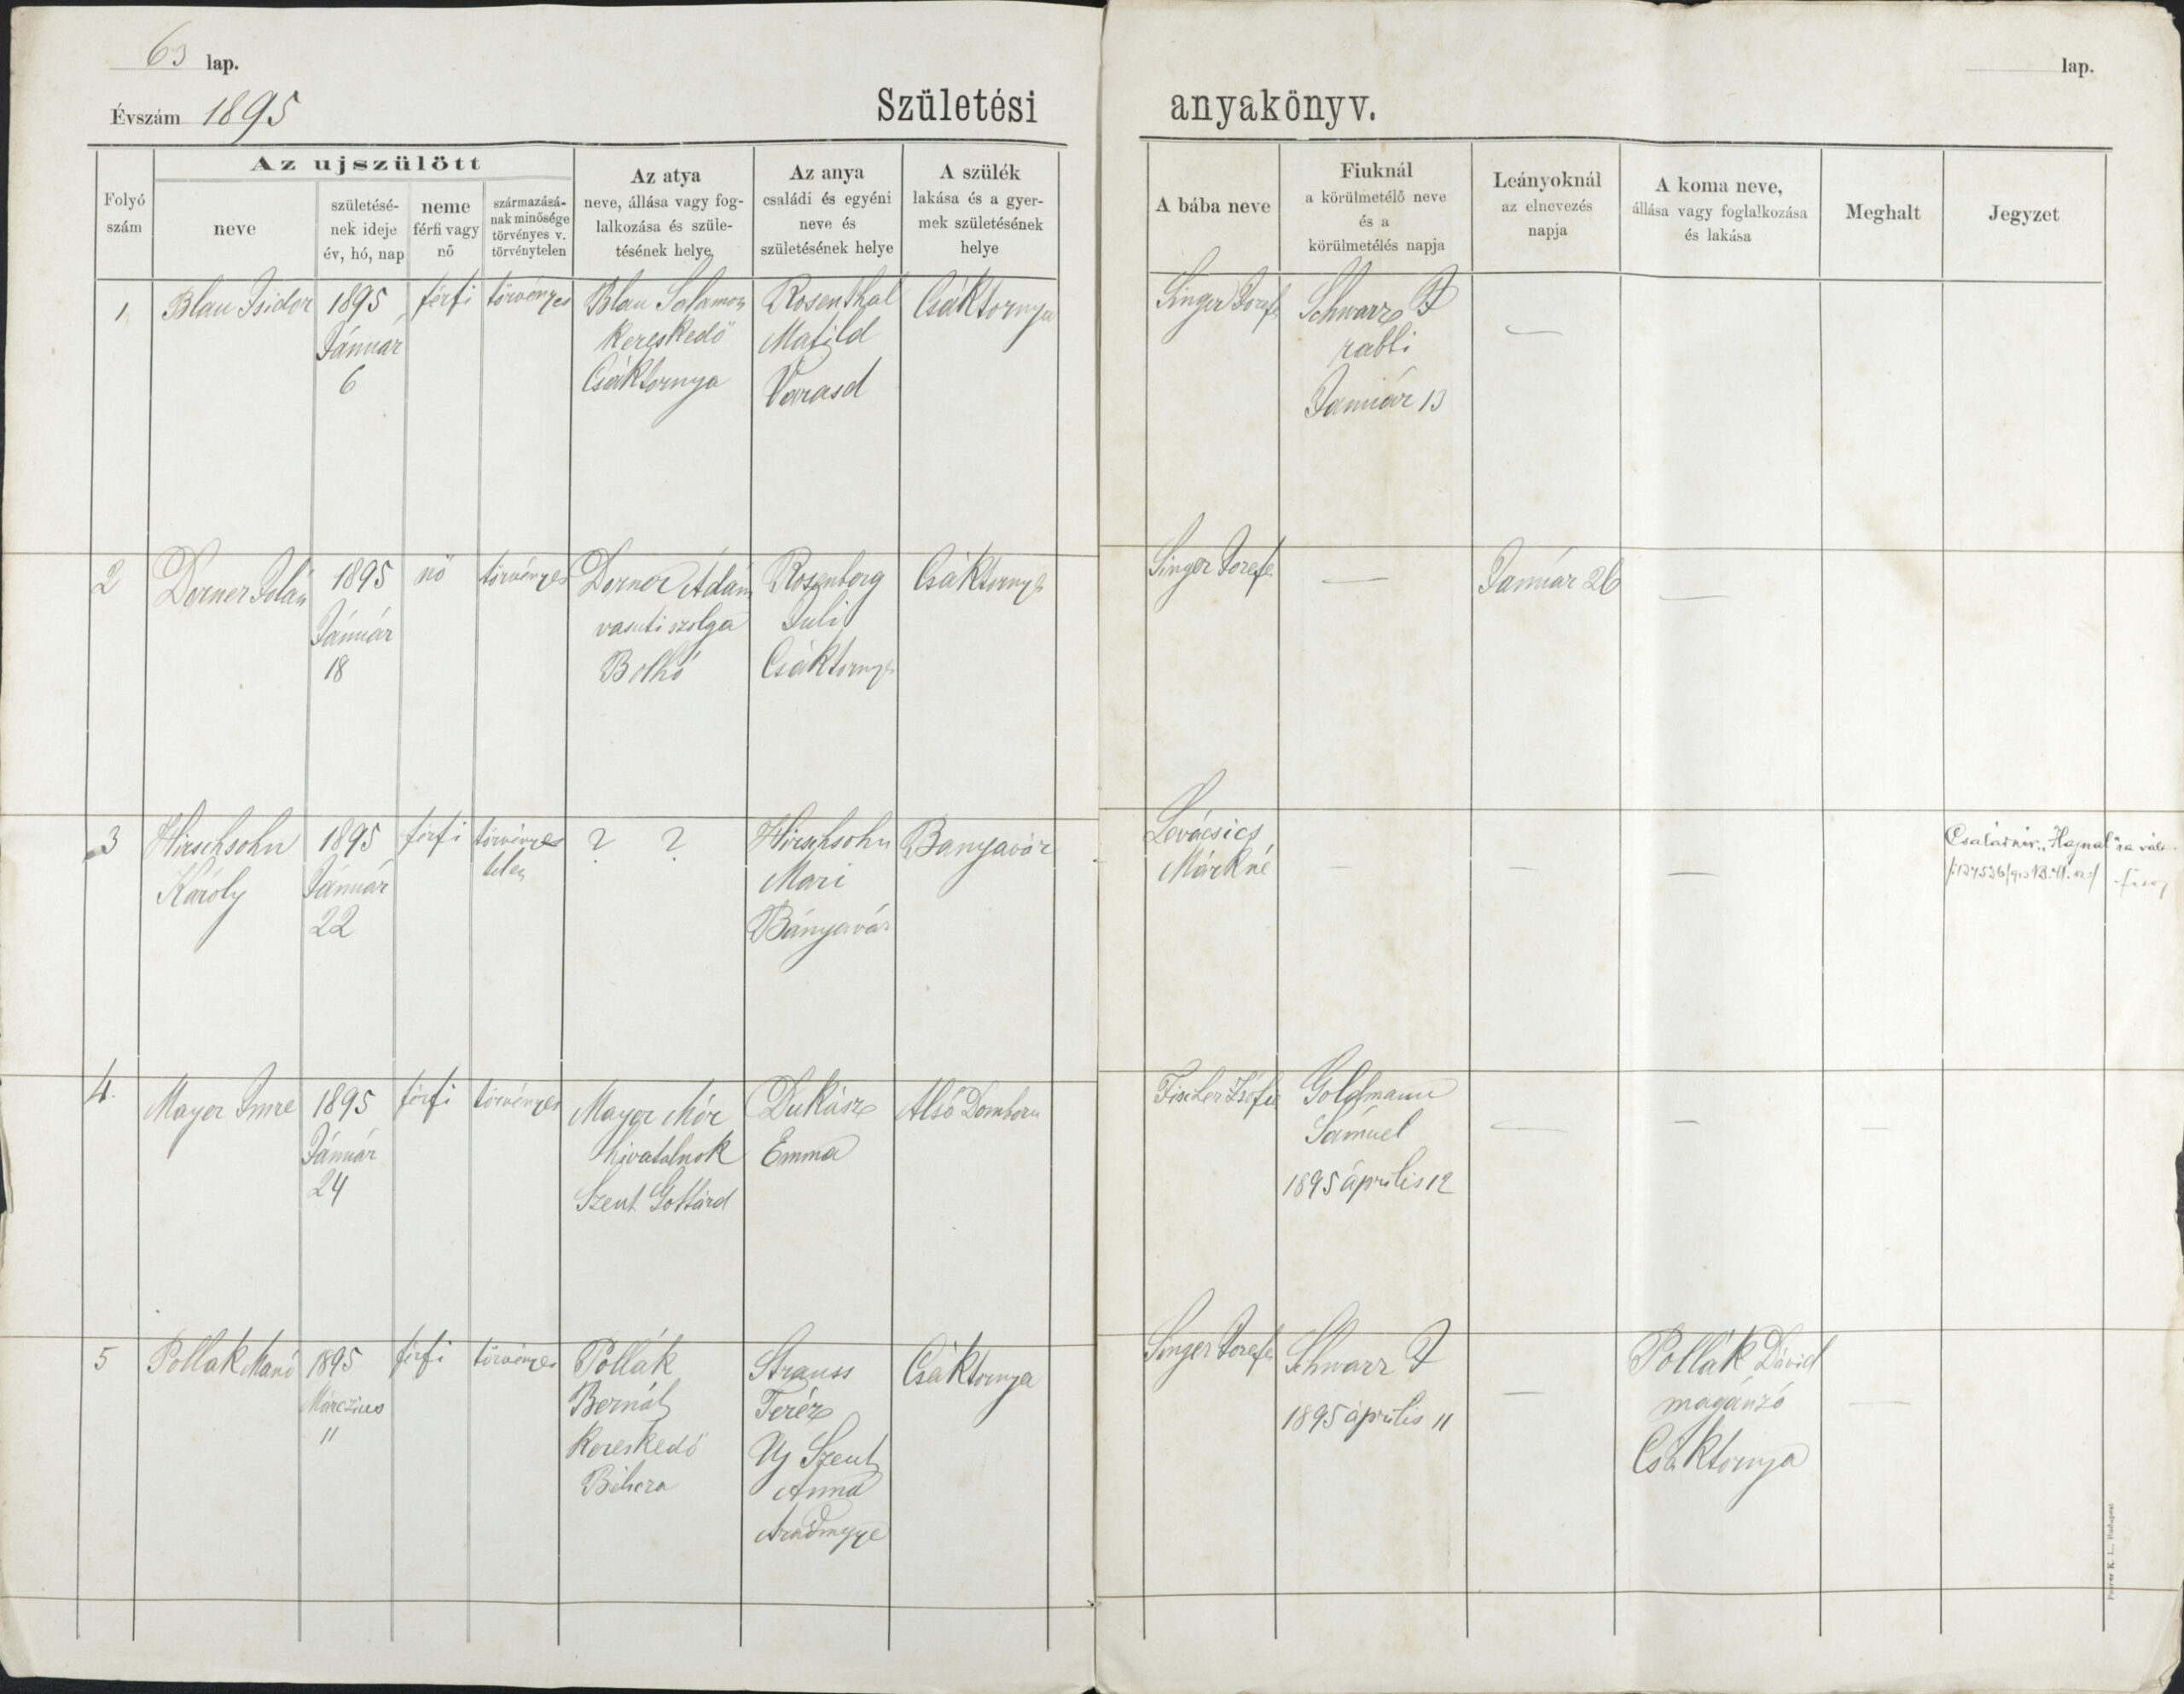 63 lap.
Évszám 1895
Születési anyakönyv.
lap.
Folyó szám
Az ujszülött
neve
születésé-
nek ideje
év, hó, nap
neme
férfi vagy
nő
származásá-
nak minősége
törvényes v.
törvénytelen
Az atya
neve, állása vagy fog-
lalkozása és szüle-
tésének helye
Az anya
családi és egyéni
neve és
születésének helye
A szülék
lakása és a gyer-
mek születésének
helye
A bába neve
Fiuknál
a körülmetélő neve
és a
körülmetélés napja
Leányoknál
az elnevezés
napja
A koma neve,
állása vagy foglalkozása
és lakása
Meghalt
Jegyzet
1
Blau Isidor
1895
Január
6
férfi
törvényes
Blau Salamon
kereskedő
Csáktornya
Rosenthal
Matild
Varasd
Csáktornya
Singer Josefa
Schwarz I
rabbi
Január 13
—
2
Dorner Jolán
1895
Január
18
nő
törvényes
Dorner Ádám
vasuti szolga
Bolhó
Rosenberg
Juli
Csáktornya
Csáktornya
Singer Josefa
—
Január 26
—
3
Hirschsohn
Károly
1895
Január
22
férfi
törvényes
telen
? ?
Hirschsohn
Mari
Bányavár
Banyavár
Lovácsics
Márkné
—
—
—
Családnév "Hajnal"ra vált.
4.
Mayer Imre
1895
Január
24
férfi
törvényes
Mayer Mór
hivatalnok
Szent Gottárd
Dukász
Emma
Alsó Domboru
Fischer Zsófia
Goldmann
Sámuel
1895 április 12
—
—
—
5
Pollák Manó
1895
Márczius
11
férfi
törvényes
Pollák
Bernát
kereskedő
Strauss
Teréz
Uj Szent
Anna
Aradmegye
Csáktornya
Singer Josefa
Schwarz I
1895 április 11
—
Pollák Dávid
magánzó
Csáktornya
—